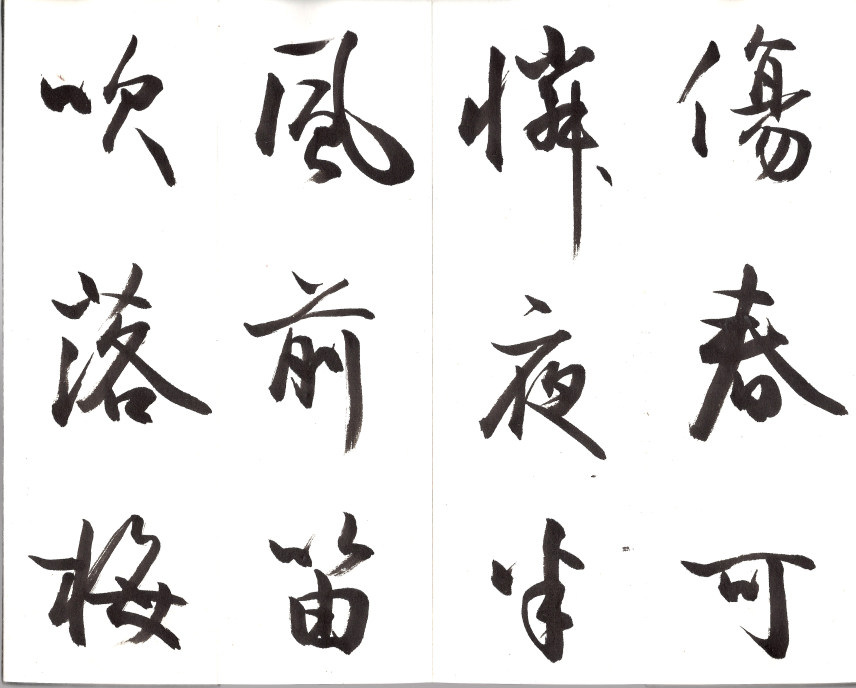 傷春可
憐夜半
風前笛
吹落梅